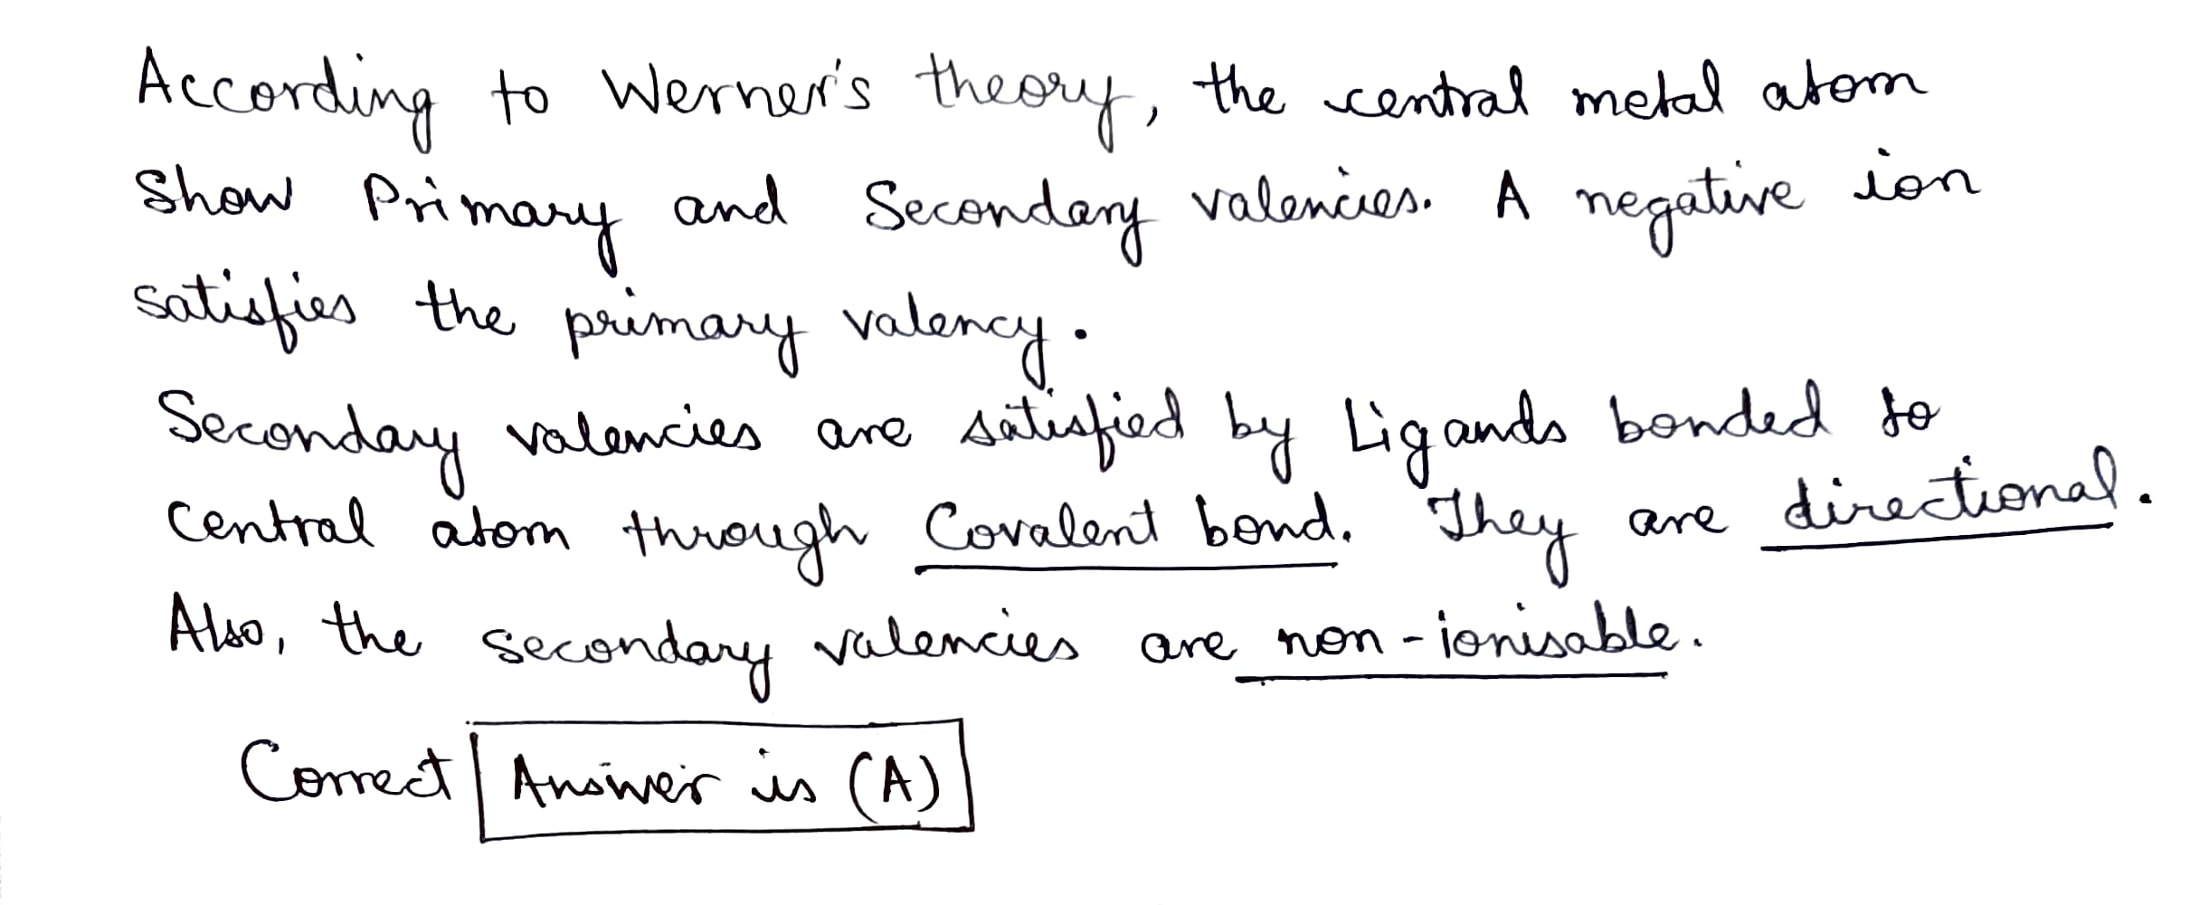 According to Werner's theory, the central metal atom
Show Primary and Secondary valencies. A negative ion
satisfies the primary valency.
Secondary valencies are satisfied by Ligands bonded to
Central atom through Covalent bond. They are directional.
Also, the secondary valencies are non-ionisable.
Correct Answer is (A)